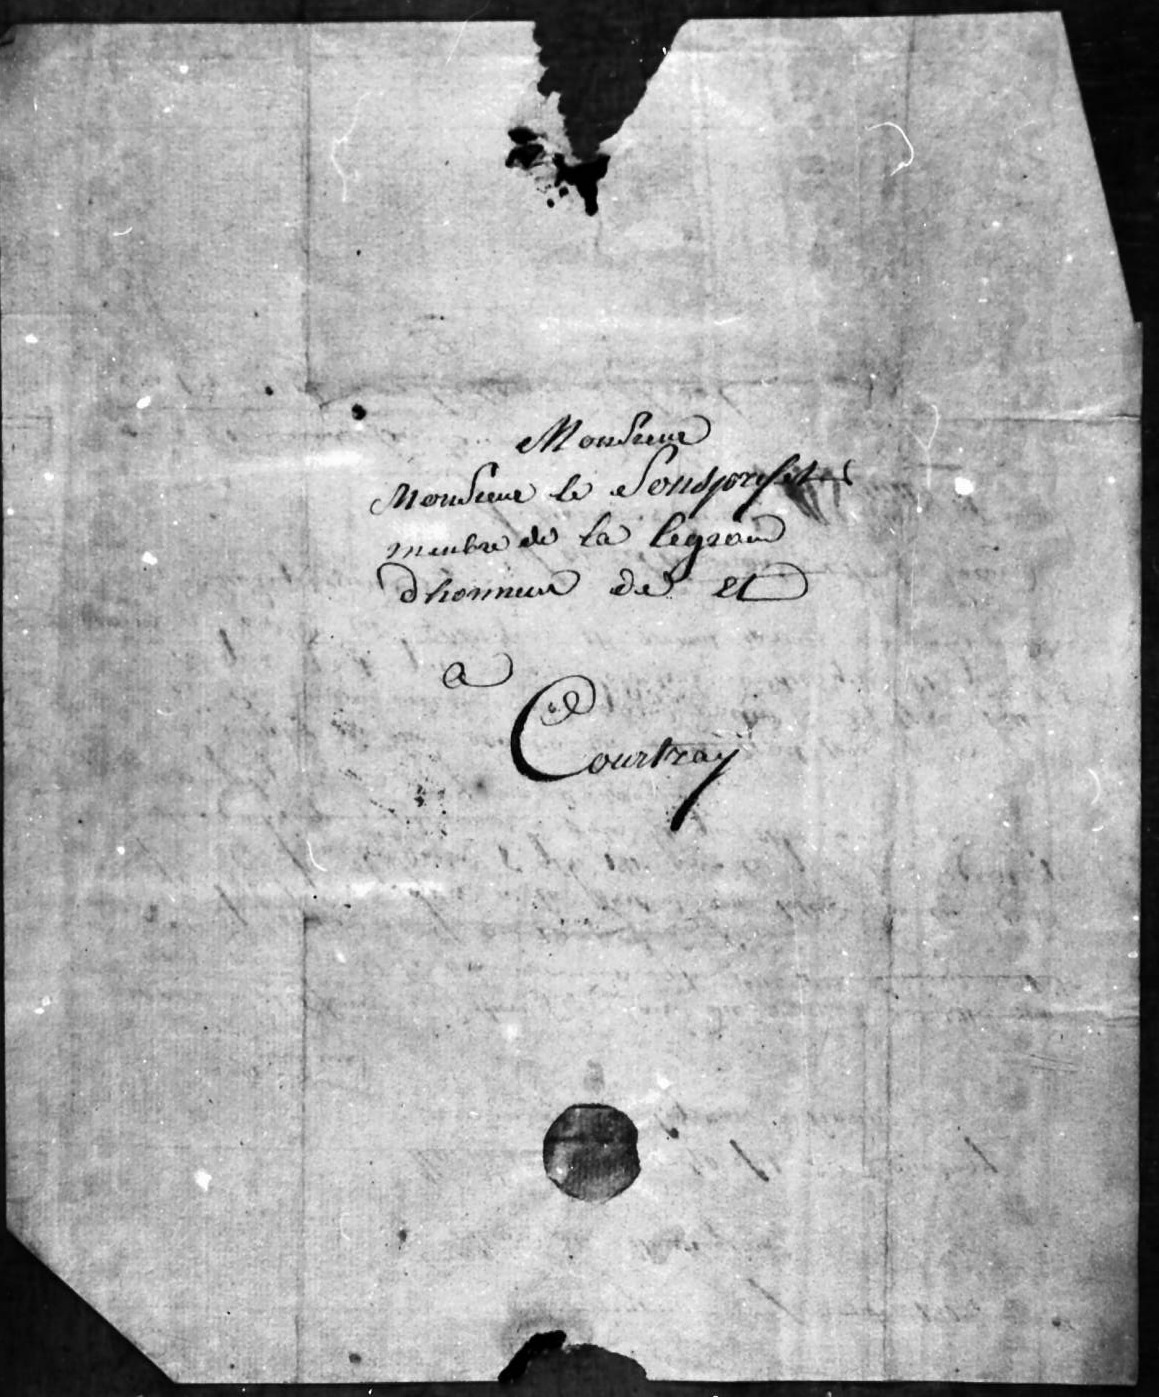 Monsieur
Monsieur le Sousprefet
menbre de la legion
dhonneur de et
a
Courtray